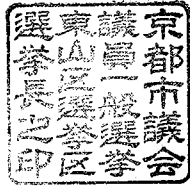 京都市議会
議員一般選挙
東山区選挙区
選挙長之印